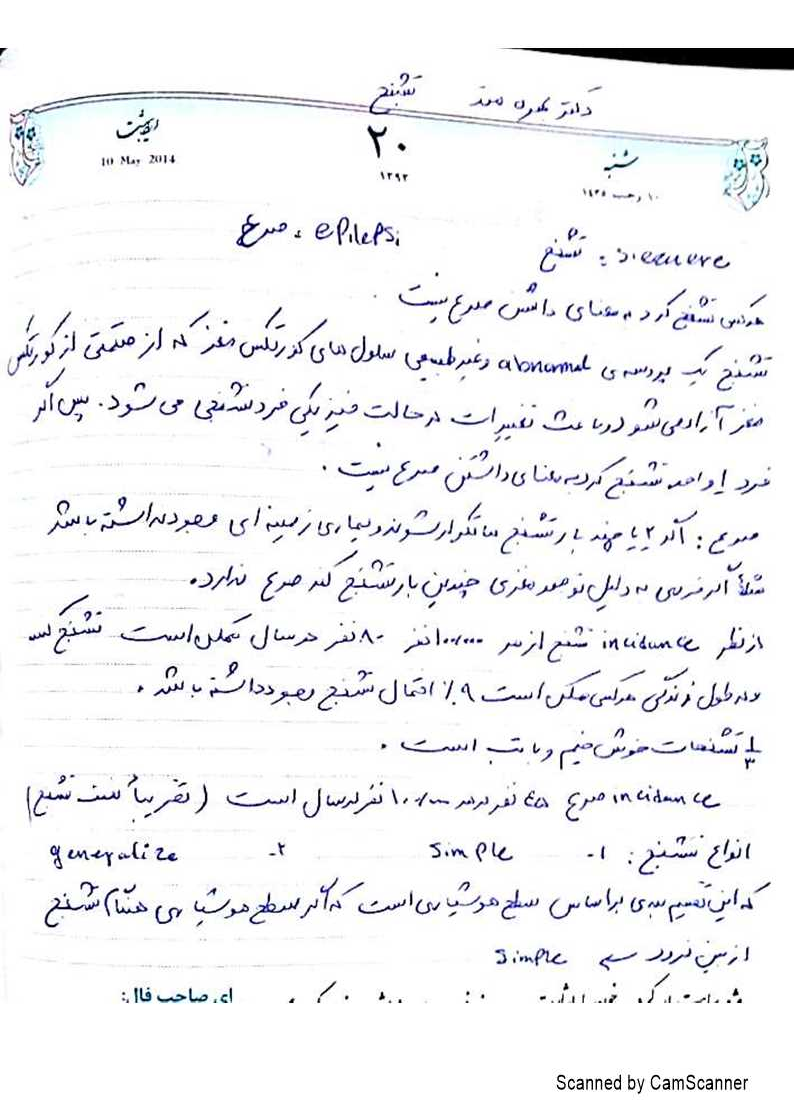 دکتر بهره مند تشنج
شنبه ۲۰ اردیبهشت
۱۰ رجب ۱۴۳۵ ۱۳۹۳ 10 May 2014
تشنج : epilepsi : صرع
هرکس تشنج کرد به معنای داشتن صرع نیست .
تشنج یک پروسه ی abnormal وغیرطبیعی سلول های کورتکس مغز که از قسمتی از کورتکس
مغز آزاد می شود و باعث تغییرات در حالت فیزیکی فرد تشنجی می شود . پس اگر
فرد اواحد تشنج کرد به معنای داشتن صرع نیست .
صرع : اگر ۲ یا چند بار تشنج ها تکرار شوند و بیماری زمینه ای وجود نداشته باشد
مثلاً اگر فردی به دلیل تومور مغزی چندین بار تشنج کند صرع ندارد .
از نظر incidance تشنج از هر ۱۰۰/۰۰۰ نفر ۸۰ نفر در سال ممکن است تشنج کند
و در طول زندگی هرکس ممکن است ۹٪ احتمال تشنج وجود داشته باشد .
۱/۳ تشنجات خوش خیم و با تب است .
incidance صرع ۴۵ نفر در هر ۱۰۰/۰۰۰ نفر در سال است (تقریباً نصف تشنج)
انواع تشنج : ۱- simple ۲- generalize
که این تقسیم بندی براساس سطح هوشیاری است که اگر سطح هوشیاری هنگام تشنج
از بین نرود simple
ای صاحب فال:
Scanned by CamScanner